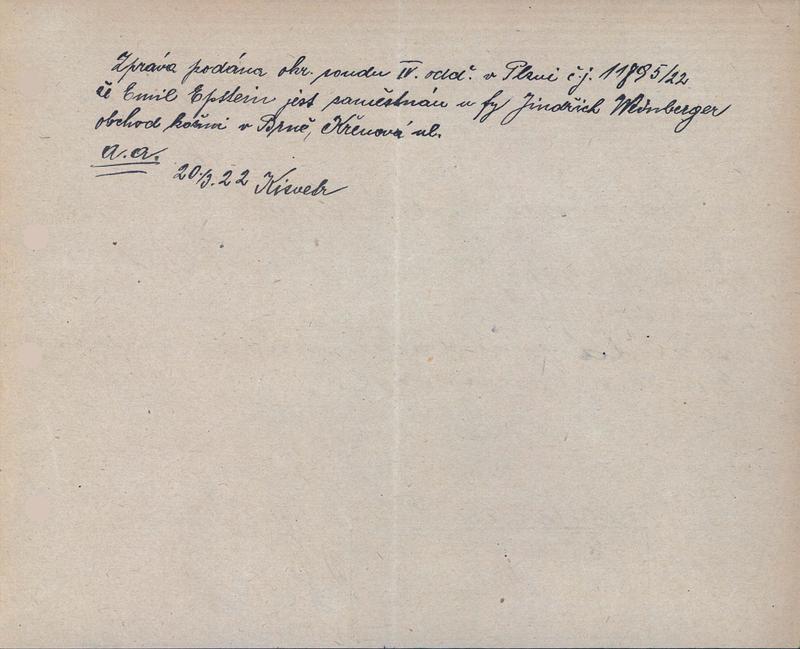 Zpráva podána okr. soudu IV. odd. v Plzni č.j. 11895/22
že Emil Epstein jest zaměstnán u fy Jindřich Weinberger
obchod kožmi v Brně, Křenová ul.
a.a.
20/3.22